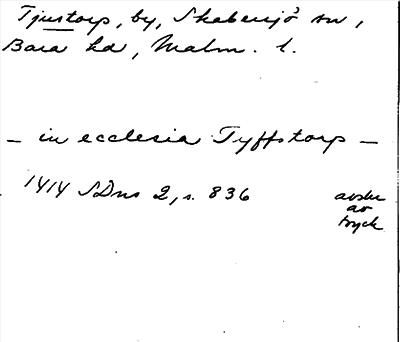 Tjustorp, by, Skabersjö sn,
Bara hd, Malm. l.
— in ecclesia Tyffstorp —
1414 SDns 2, s. 836
avskr
av
tryck